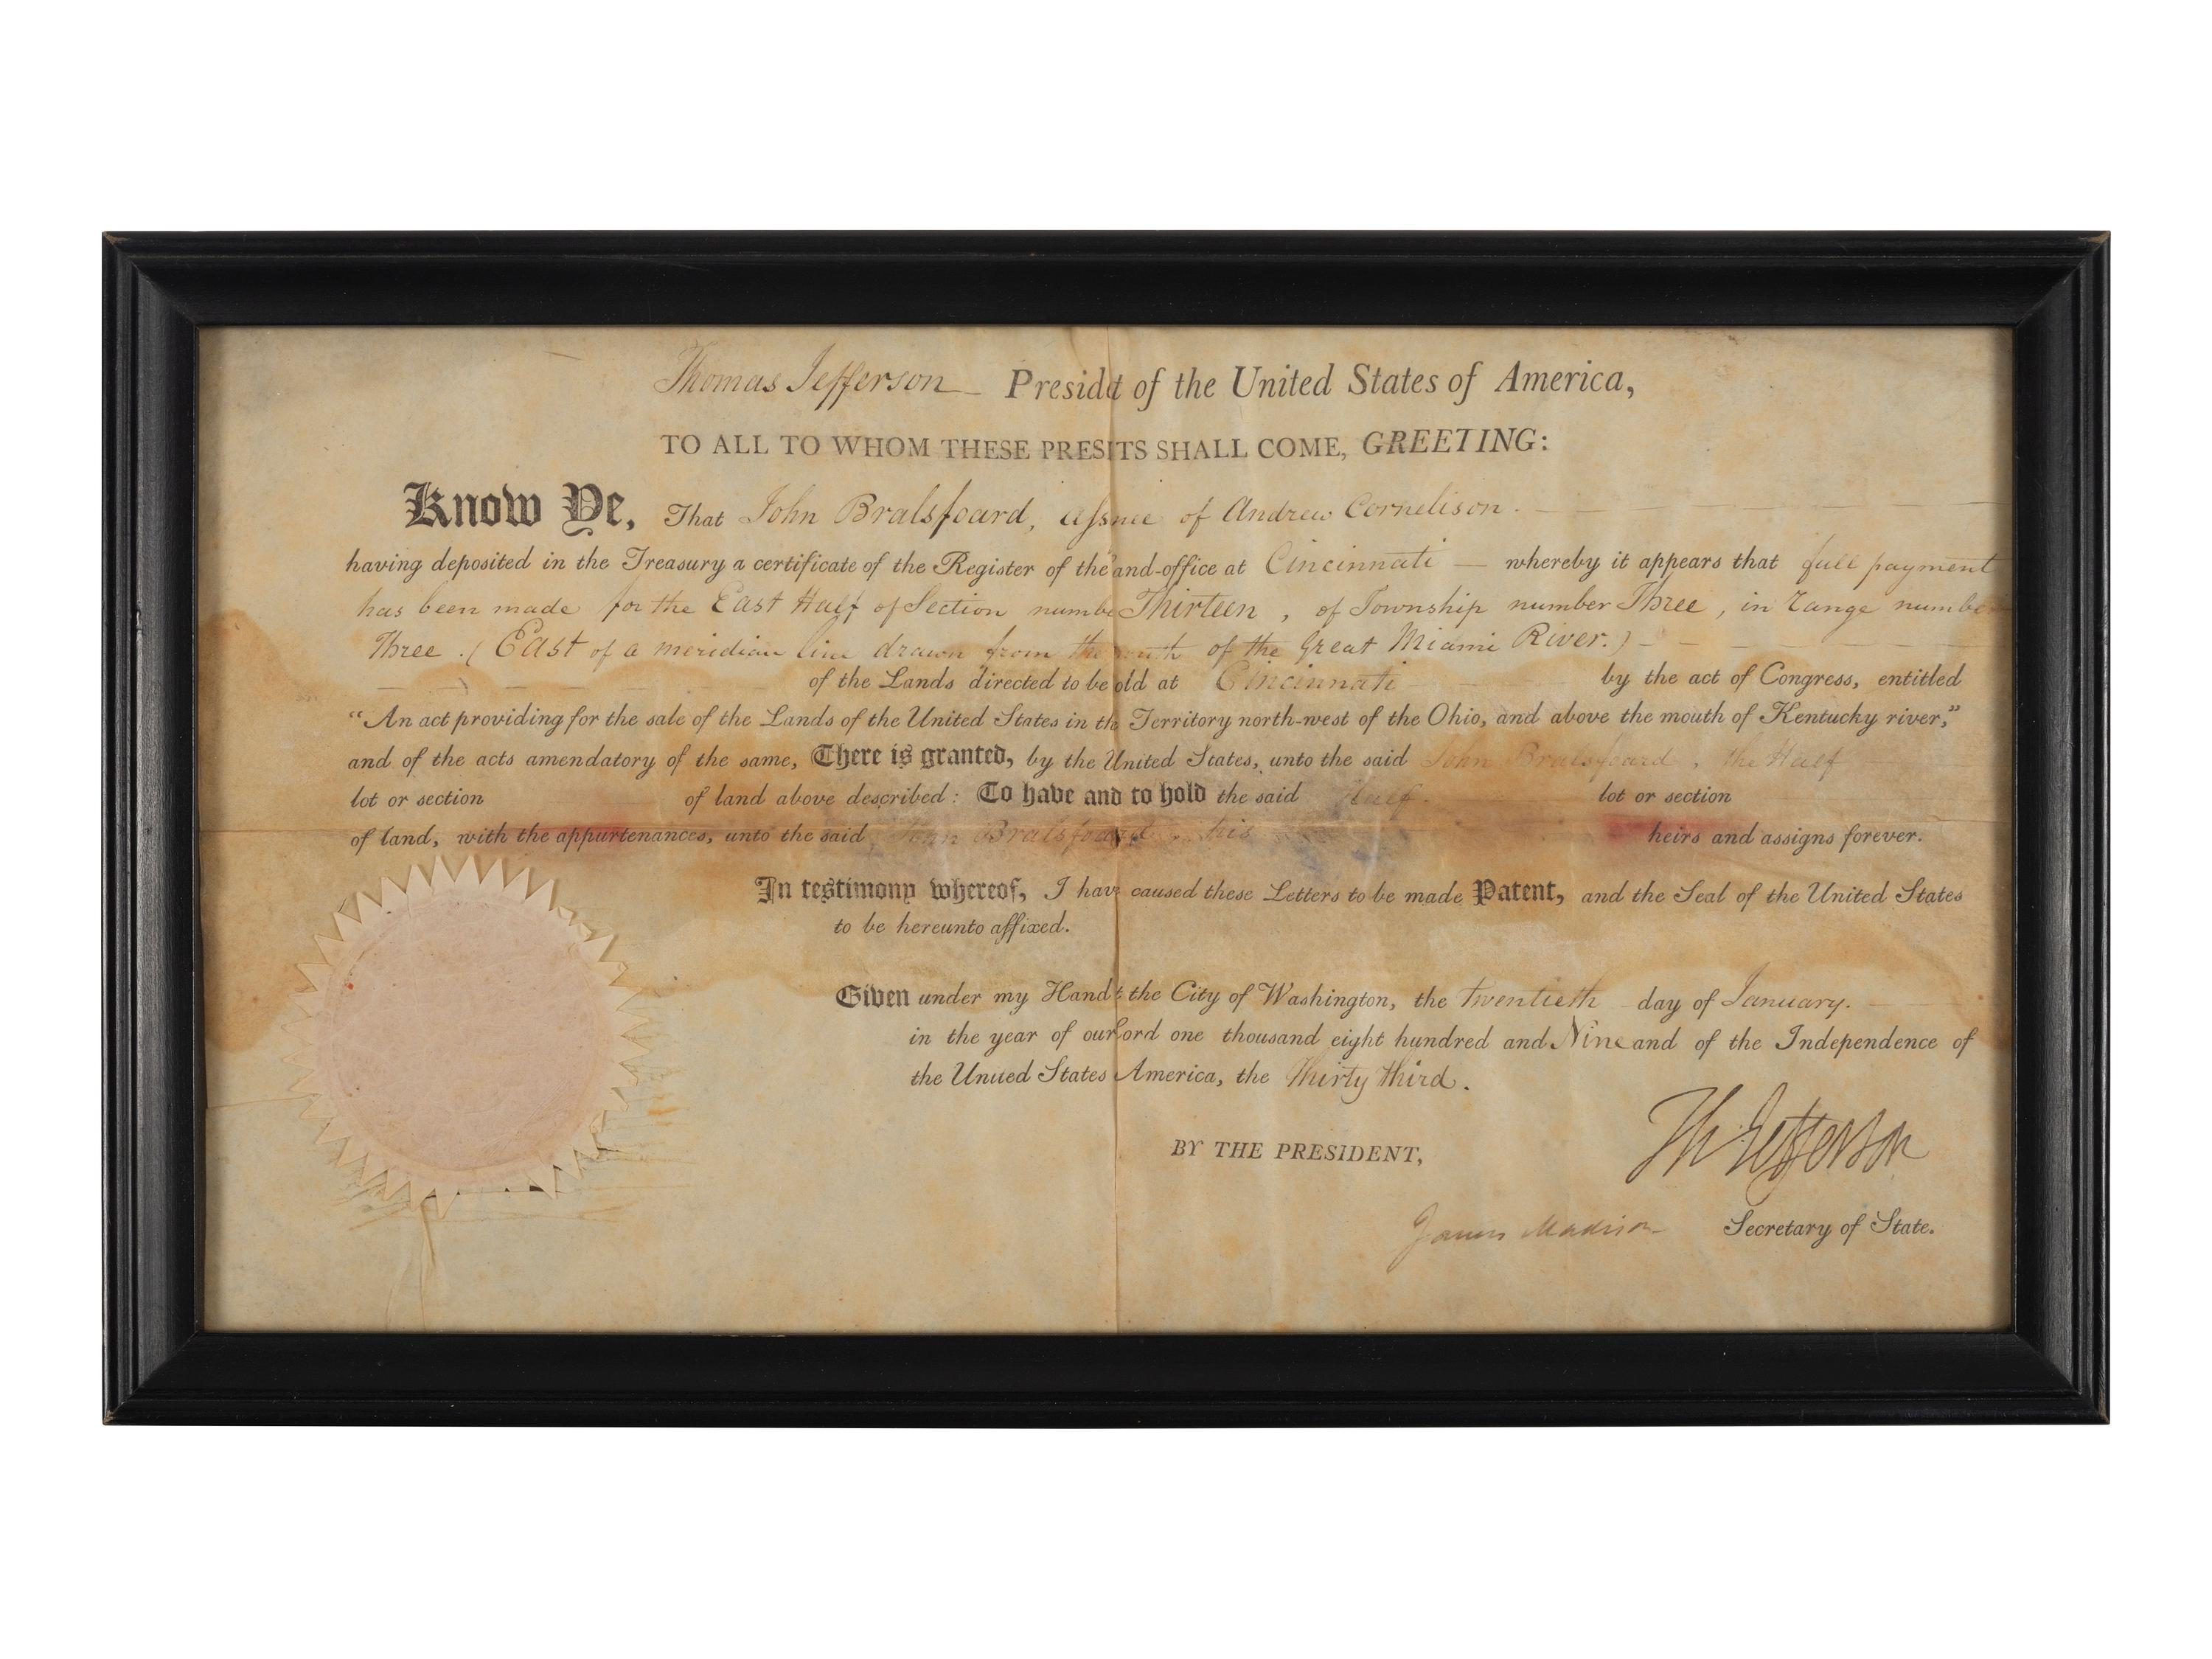 Thomas Jefferson Presidt of the United States of America,
TO ALL TO WHOM THESE PRESITS SHALL COME, GREETING:
Know Ye, That John Bralsfoard, assnee of Andrew Cornelison.
having deposited in the Treasury a certificate of the Register of the and-office at Cincinnati — whereby it appears that full payment
has been made for the East Half of Section numbe Thirteen, of Township number Three, in range numbe
Three. (East of a meridian line drawn from the mouth of the Great Miami River.)
of the Lands directed to be old at Cincinnati by the act of Congress, entitled
“An act providing for the sale of the Lands of the United States in th Territory north-west of the Ohio, and above the mouth of Kentucky river,”
and of the acts amendatory of the same, There is granted, by the United States, unto the said John Bralsfoard, the Half
lot or section of land above described: To have and to hold the said Half lot or section
of land, with the appurtenances, unto the said John Bralsfoard his heirs and assigns forever.
In testimony whereof, I have caused these Letters to be made Patent, and the Seal of the United States
to be hereunto affixed.
Given under my Hand t the City of Washington, the twentieth day of January.
in the year of our ord one thousand eight hundred and Nine and of the Independence of
the United States America, the Thirty third.
BY THE PRESIDENT,
Th Jefferson
James Madison Secretary of State.